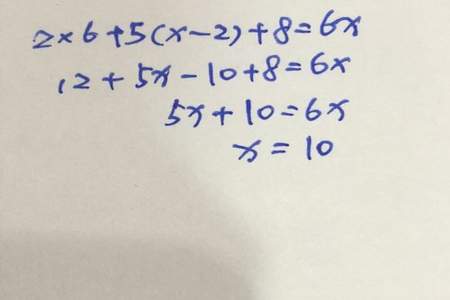 2×6+5(x-2)+8=6x
12+5x-10+8=6x
5x+10=6x
x=10